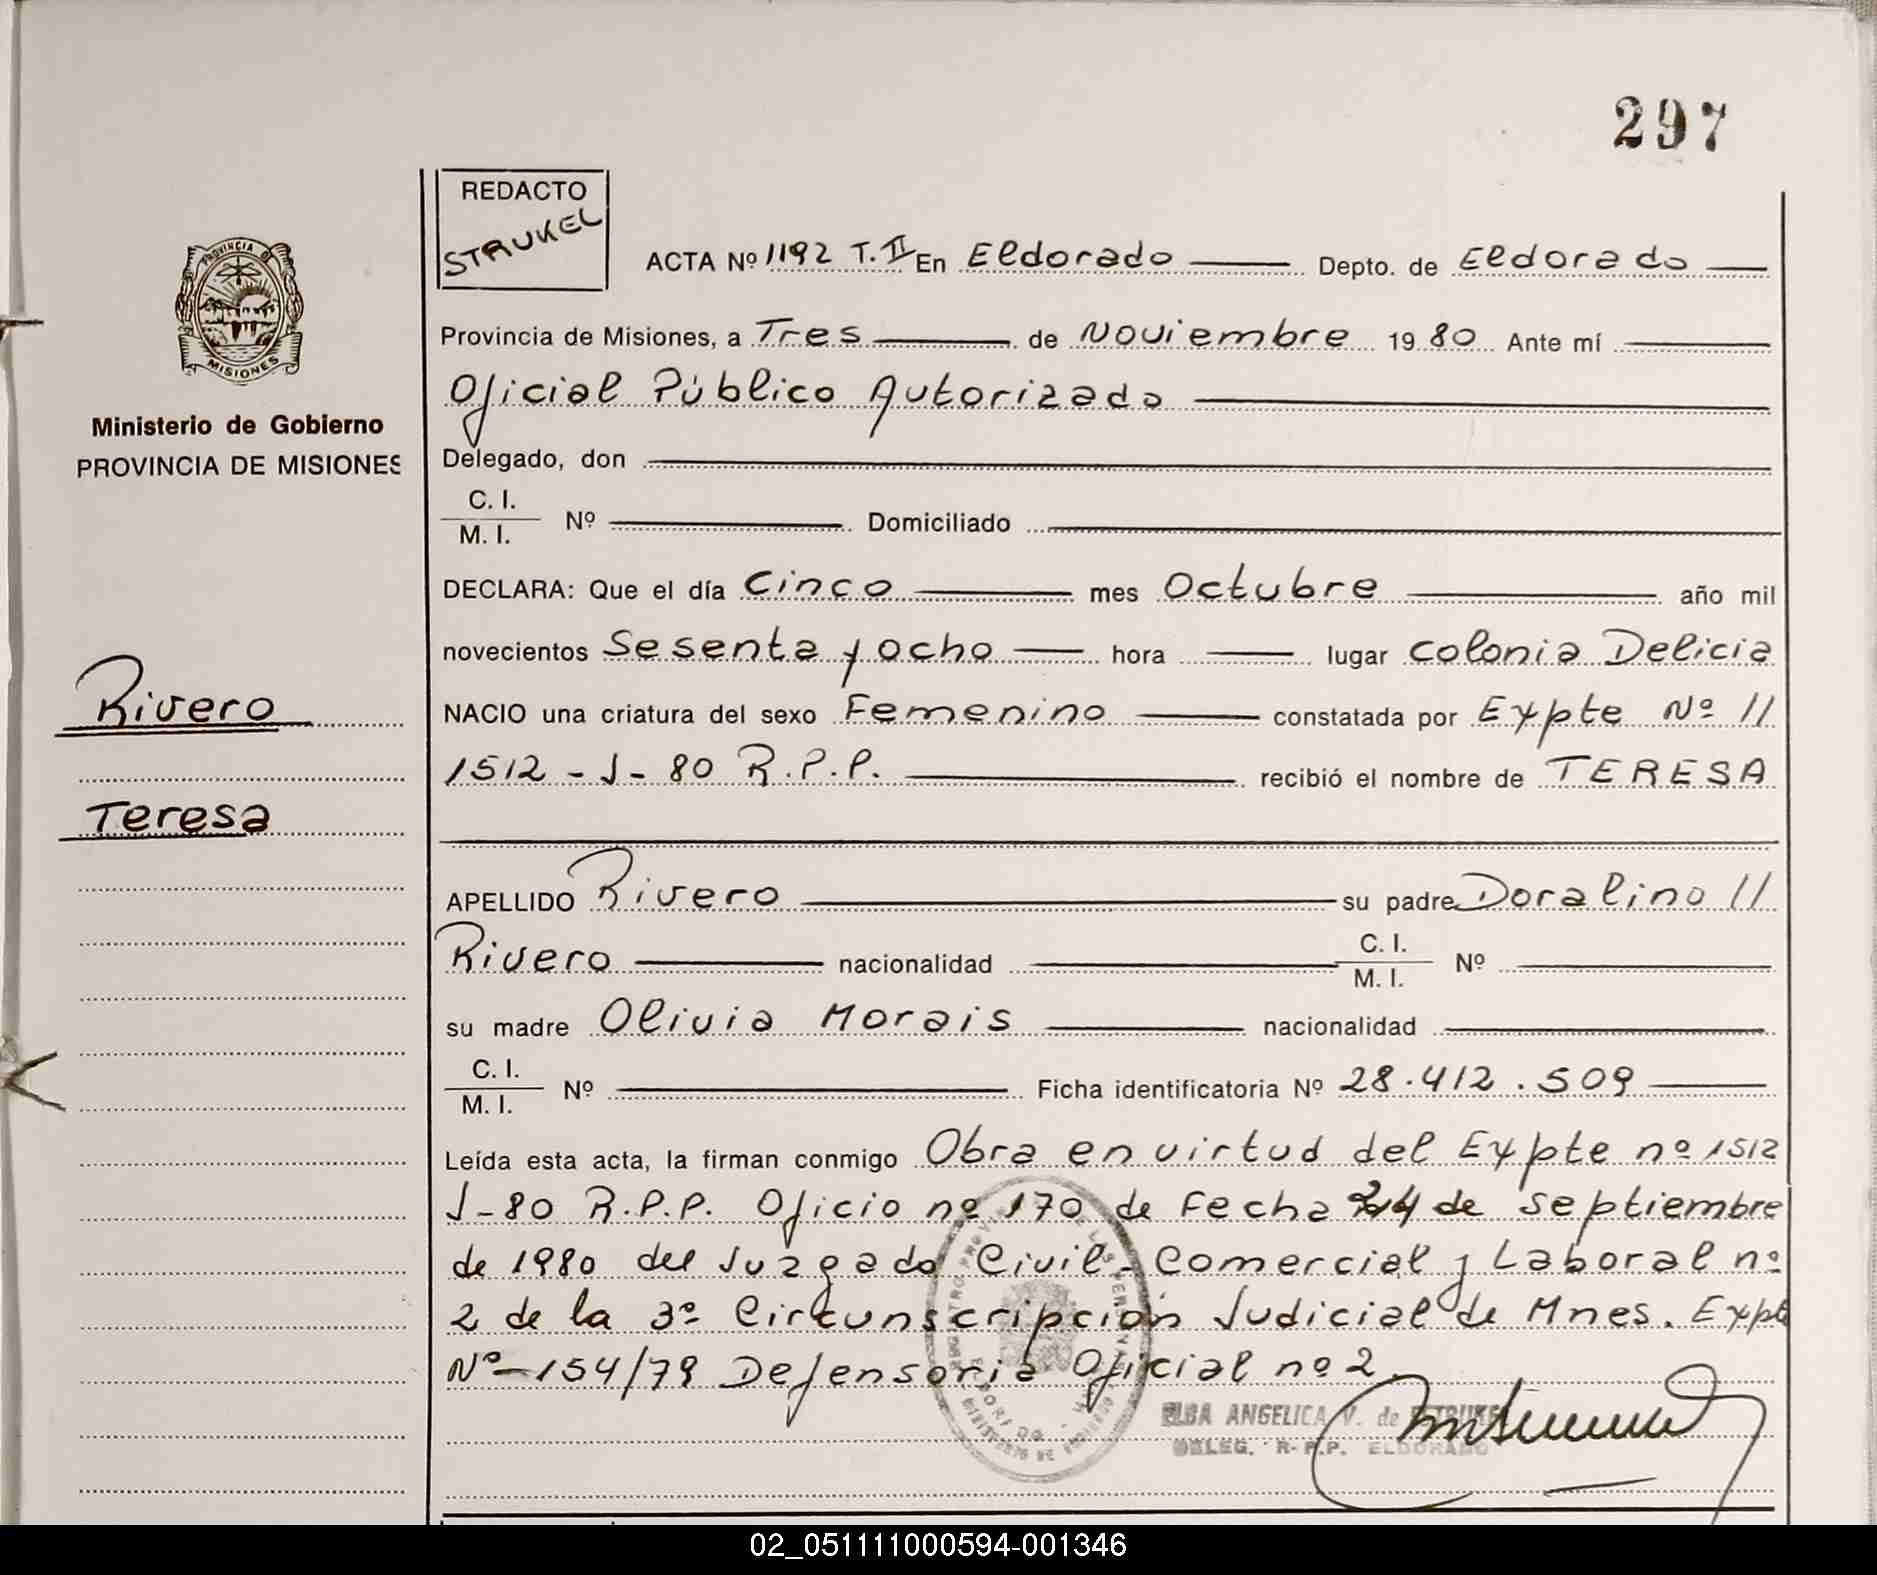 297
REDACTO
STRUKEL
ACTA Nº 1192 T. II En Eldorado Depto. de Eldorado
PROVINCIA DE
MISIONES
Provincia de Misiones, a Tres de Noviembre 1980 Ante mí
Oficial Público Autorizado
Ministerio de Gobierno
PROVINCIA DE MISIONES
Delegado, don
C. I.
M. I. Nº Domiciliado
DECLARA: Que el día Cinco mes Octubre año mil
novecientos Sesenta y ocho hora lugar Colonia Delicia
Rivero
NACIO una criatura del sexo Femenino constatada por Expte Nº //
1512 - J - 80 R.P.P. recibió el nombre de TERESA
Teresa
APELLIDO Rivero su padre Doralino //
Rivero nacionalidad C. I. M. I. Nº
su madre Olivia Morais nacionalidad
C. I.
M. I. Nº Ficha identificatoria Nº 28.412.509
Leída esta acta, la firman conmigo Obra en virtud del Expte nº 1512
J-80 R.P.P. Oficio nº 170 de Fecha 24 de septiembre
de 1980 del Juzgado Civil - Comercial y Laboral nº
2 de la 3º Circunscripción Judicial de Mnes. Expte
Nº-154/79 Defensoria Oficial nº 2.
ELBA ANGELICA V. de STRUKEL
DELEG. R-P.P. ELDORADO
02_051111000594-001346